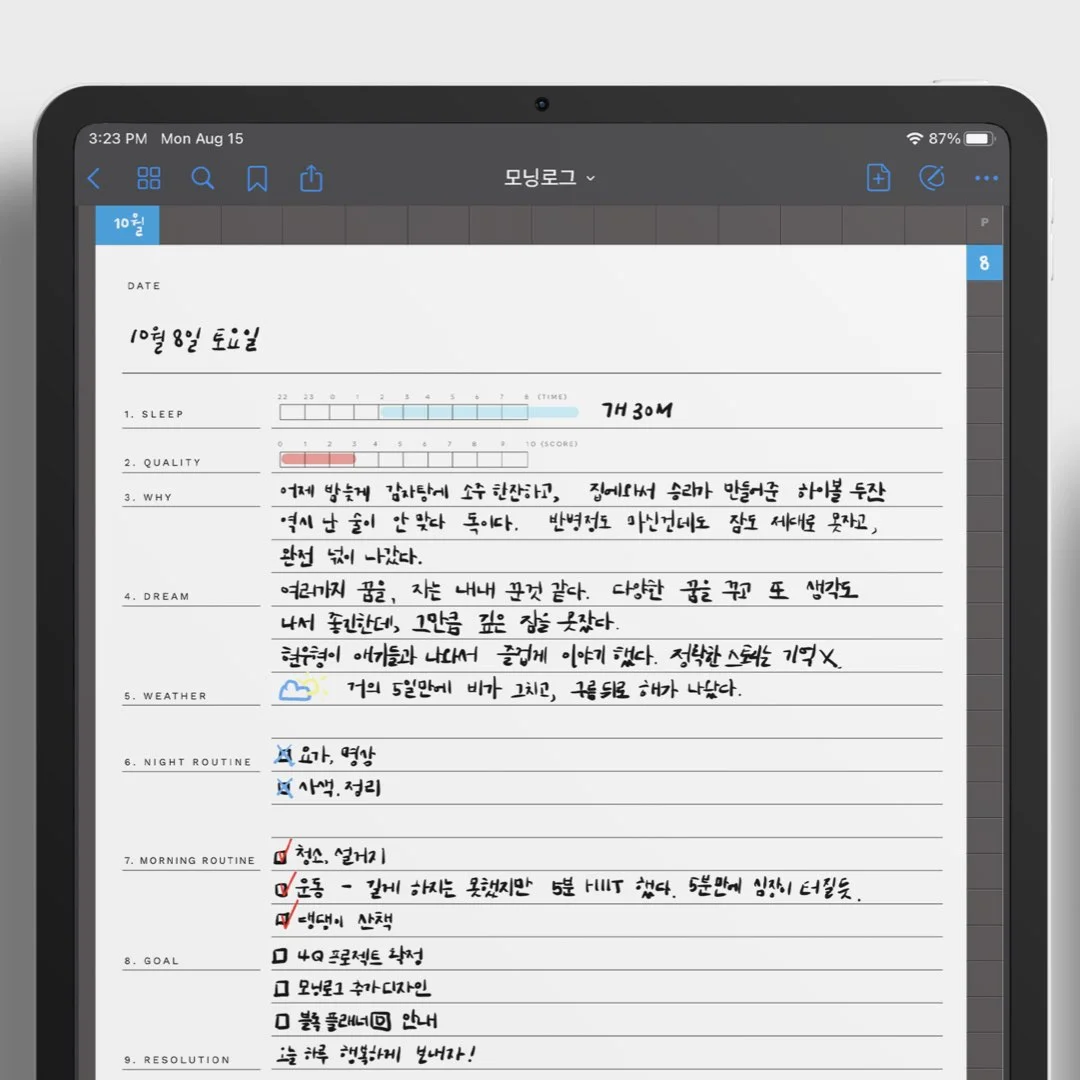 3:23 PM Mon Aug 15 87%
모닝로그
10월 P
8
DATE
10월 8일 토요일
22 23 0 1 2 3 4 5 6 7 8 (TIME)
1. SLEEP 7H 30M
0 1 2 3 4 5 6 7 8 9 10 (SCORE)
2. QUALITY
3. WHY 어제 밤늦게 감자탕에 소주 한잔하고, 집에와서 승리가 만들어준 하이볼 두잔
역시 난 술이 안 맞다 독이다. 반병정도 마신건데도 잠도 세대로 못자고,
완전 넋이 나갔다.
4. DREAM 여러가지 꿈을, 자는 내내 꾼것 같다. 다양한 꿈을 꾸고 또 생각도
나서 좋긴한데, 그만큼 깊은 잠을 못잤다.
현우형이 애기들과 나와서 즐겁게 이야기 했다. 정확한 스토리는 기억X.
5. WEATHER 거의 5일만에 비가 그치고, 구름 뒤로 해가 나왔다.
6. NIGHT ROUTINE 요가, 명상
사색. 정리
7. MORNING ROUTINE 청소, 설거지
운동 - 길게 하지는 못했지만 5분 HIIT 했다. 5분만에 심장이 터질듯.
댕댕이 산책
8. GOAL 4Q 프로젝트 확정
모닝로그 추가디자인
블록 플래너 안내
9. RESOLUTION 오늘 하루 행복하게 보내자!